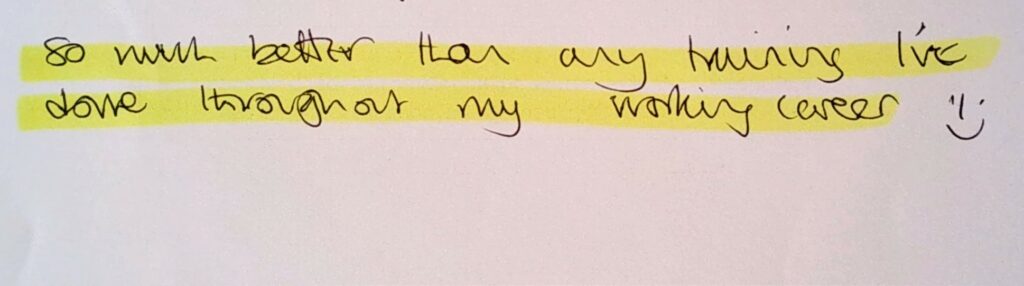 so much better than any training I've
done throughout my working career :)